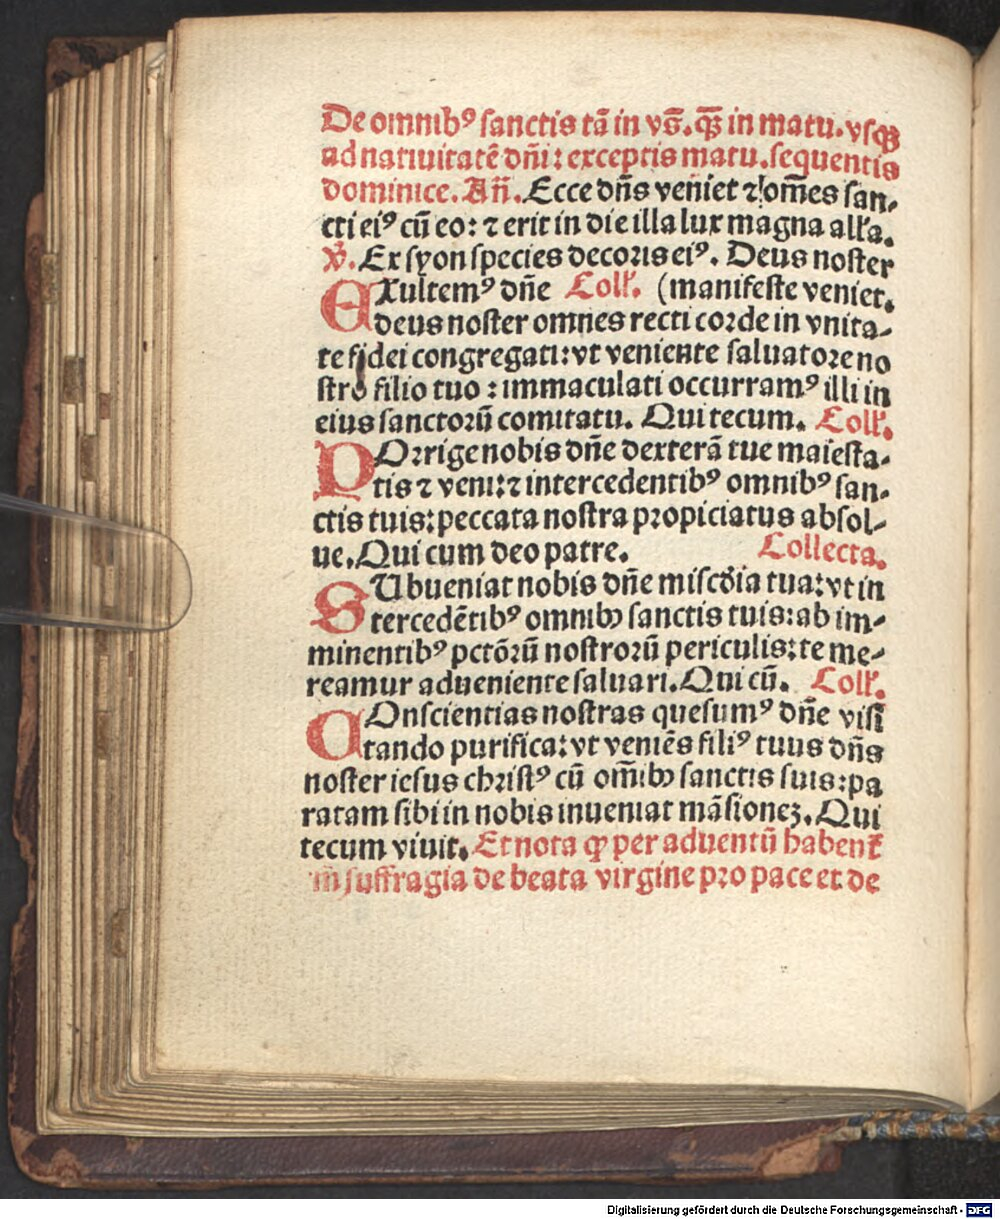 De omnibꝰ sanctis tā in vs̄.qꝫ in matu.vsqꝫ
ad natiuitatē dn̄i: exceptis matu.sequentis
dominice. An̄. Ecce dn̄s veniet ⁊ om̄es san-
cti eiꝰ cū eo: ⁊ erit in die illa lux magna all'a.
℣. Ex syon species decoris eiꝰ. Deus noster
EXultemꝰ dn̄e Coll'. (manifeste veniet.
deus noster omnes recti corde in vnita-
te fidei congregati: vt veniente saluatore no
stro filio tuo : immaculati occurramꝰ illi in
eius sanctorū comitatu. Qui tecum. Coll'.
POrrige nobis dn̄e dexterā tue maiesta-
tis ⁊ veni: ⁊ intercedentibꝰ omnibꝰ san-
ctis tuis: peccata nostra propiciatus absol-
ue. Qui cum deo patre. Collecta.
SUbueniat nobis dn̄e misc̄dia tua: vt in
tercedētibꝰ omnibꝫ sanctis tuis: ab im-
minentibꝰ pctōrū nostrorū periculis: te me-
reamur adueniente saluari. Qui cū. Coll'.
COnscientias nostras quesumꝰ dn̄e visi
tando purifica: vt veniēs filiꝰ tuus dn̄s
noster iesus christꝰ cū om̄ibꝫ sanctis suis: pa
ratam sibi in nobis inueniat māsionez. Qui
tecum viuit. Et nota ꝙ per aduentū habent̄
m̄ suffragia de beata virgine pro pace et de
Digitalisierung gefördert durch die Deutsche Forschungsgemeinschaft - DFG